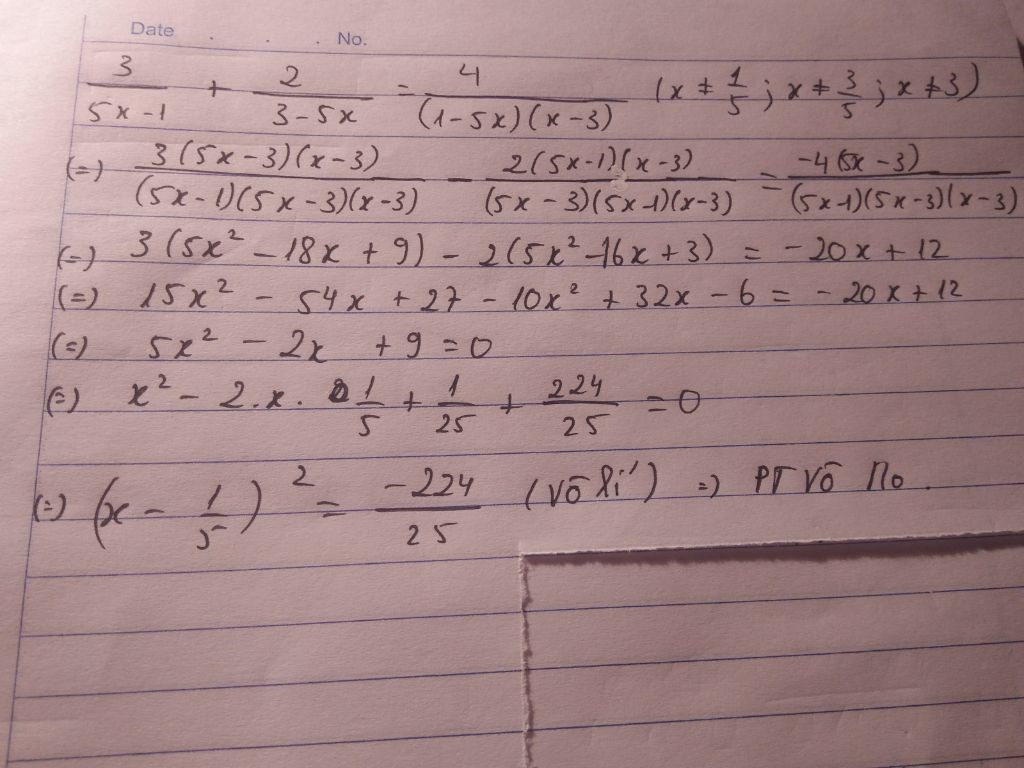 Date . . . No.
3/(5x-1) + 2/(3-5x) = 4/((1-5x)(x-3)) (x ≠ 1/5 ; x ≠ 3/5 ; x ≠ 3)
(=) 3(5x-3)(x-3)/((5x-1)(5x-3)(x-3)) - 2(5x-1)(x-3)/((5x-3)(5x-1)(x-3)) = -4(5x-3)/((5x-1)(5x-3)(x-3))
(=) 3(5x² - 18x + 9) - 2(5x² - 16x + 3) = -20x + 12
(=) 15x² - 54x + 27 - 10x² + 32x - 6 = -20x + 12
(=) 5x² - 2x + 9 = 0
(=) x² - 2.x. 1/5 + 1/25 + 224/25 = 0
(=) (x - 1/5)² = -224/25 (vô lí) => PT vô no.